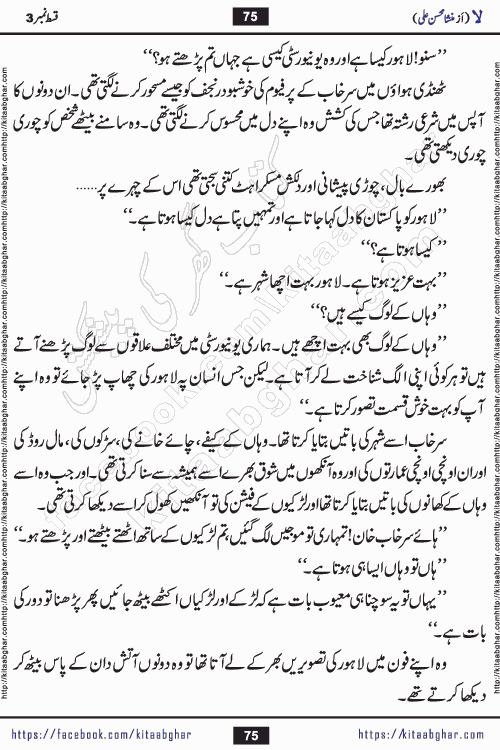 لا (از منشا محسن علی) 75 قسط نمبر 3
’’سنو! لاہور کیسا ہے اور وہ یونیورسٹی کیسی ہے جہاں تم پڑھتے ہو؟‘‘
ٹھنڈی ہواؤں میں سرخاب کے پرفیوم کی خوشبو در نجف کو جیسے مسحور کرنے لگتی تھی۔ ان دونوں کا
آپس میں شرعی رشتہ تھا جس کی کشش وہ اپنے دل میں محسوس کرنے لگتی تھی۔ وہ سامنے بیٹھے شخص کو چوری
چوری دیکھتی تھی۔
بھورے بال، چوڑی پیشانی اور دلکش مسکراہٹ کتنی سجتی تھی اس کے چہرے پر......
’’لاہور کو پاکستان کا دل کہا جاتا ہے اور تمہیں پتا ہے دل کیسا ہوتا ہے۔‘‘
’’کیسا ہوتا ہے؟‘‘
’’بہت عزیز ہوتا ہے۔ لاہور بہت اچھا شہر ہے۔‘‘
’’وہاں کے لوگ کیسے ہیں؟‘‘
’’وہاں کے لوگ بھی بہت اچھے ہیں۔ ہماری یونیورسٹی میں مختلف علاقوں سے لوگ پڑھنے آتے
ہیں تو ہر کوئی اپنی الگ شناخت لے کر آتا ہے۔ لیکن جس انسان پہ لاہور کی چھاپ پڑ جائے تو وہ اپنے
آپ کو بہت خوش قسمت تصور کرتا ہے۔‘‘
سرخاب اسے شہر کی باتیں بتایا کرتا تھا۔ وہاں کے کیفے، چائے خانے کی، سڑکوں کی، مال روڈ کی
اور ان اونچی اونچی عمارتوں کی اور وہ آنکھوں میں شوق بھرے اسے ہمیشہ سے سنا کرتی تھی۔ اور جب وہ اسے
وہاں کے کھانوں کی باتیں بتایا کرتا تھا اور لڑکیوں کے فیشن کی تو آنکھیں کھول کر اسے دیکھا کرتی تھی۔
’’ہائے سرخاب خان! تمہاری تو موجیں لگ گئیں، تم لڑکیوں کے ساتھ اٹھتے بیٹھتے اور پڑھتے ہو۔‘‘
’’ہاں تو وہاں ایسا ہی ہوتا ہے۔‘‘
’’یہاں تو یہ سوچنا ہی معیوب بات ہے کہ لڑکے اور لڑکیاں اکٹھے بیٹھ جائیں پھر پڑھنا تو دور کی
بات ہے۔‘‘
وہ اپنے فون میں لاہور کی تصویریں بھر کے لے آتا تھا تو وہ دونوں آتش دان کے پاس بیٹھ کر
دیکھا کرتے تھے۔
https://facebook.com/kitaabghar 75 https://kitaabghar.com